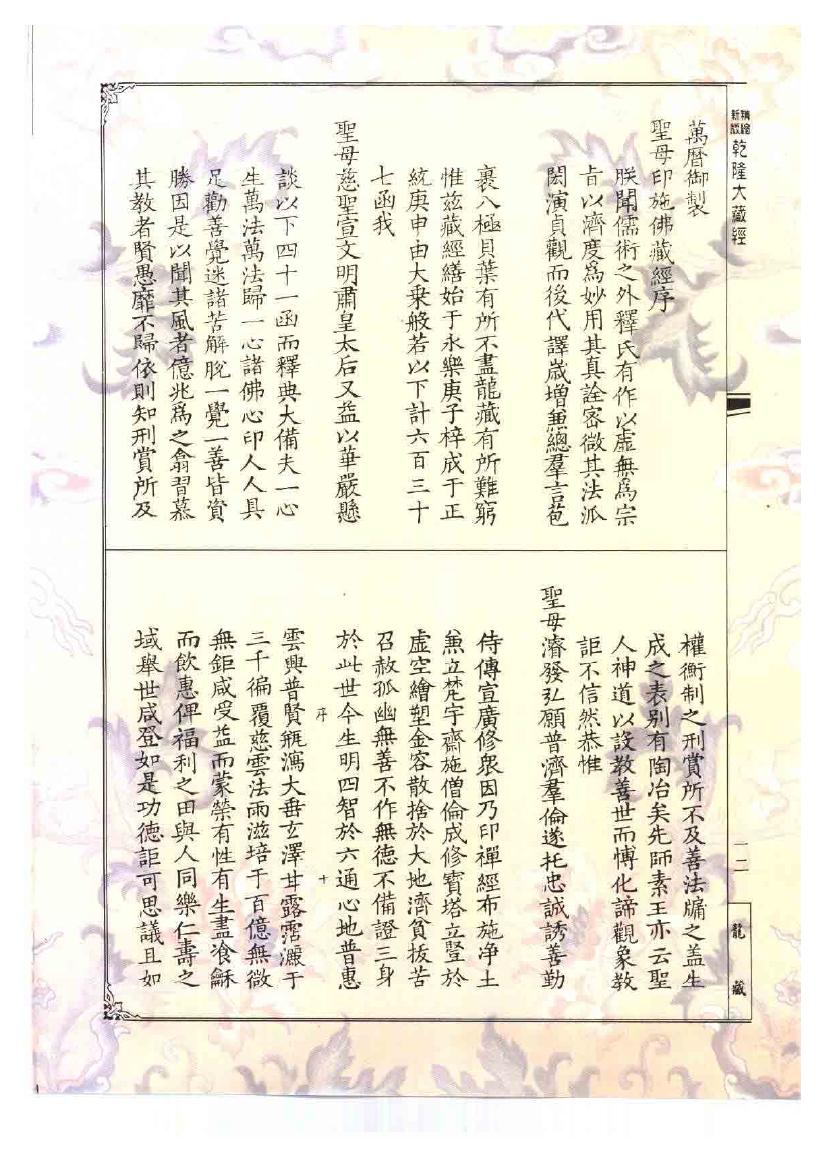 精繕新版乾隆大藏經
萬曆御製
聖母印施佛藏經序
朕聞儒術之外釋氏有作以虛無爲宗
旨以濟度爲妙用其真詮密微其法派
閎演貞觀而後代譯嵗增兼總羣言苞
裹八極貝葉有所不盡龍藏有所難窮
惟兹藏經繕始于永樂庚子梓成于正
統庚申由大乗般若以下計六百三十
七函我
聖母慈聖宣文明肅皇太后又益以華嚴懸
談以下四十一函而釋典大備夫一心
生萬法萬法歸一心諸佛心印人人具
足勸善覺迷諸苦解脫一覺一善皆資
勝因是以聞其風者億兆爲之翕習慕
其教者賢愚靡不歸依則知刑賞所及
權衡制之刑賞所不及善法牖之盖生
成之表别有陶冶矣先師素王亦云聖
人神道以設教善世而愽化諦觀象教
詎不信然恭惟
聖母濬發弘願普濟羣倫遂托忠誠誘善勤
侍傳宣廣修衆因乃印禪經布施净土
兼立梵宇齋施僧倫成修寳塔立豎於
虚空繪塑金容散捨於大地濟貧拔苦
召赦孤幽無善不作無德不備證三身
於此世今生明四智於六通心地普惠
序
十
雲興普賢瓶瀉大垂玄澤甘露霑灑于
三千徧覆慈雲法雨滋培于百億無微
無鉅咸受益而蒙榮有性有生盡飡龢
而飲惠俾福利之田與人同樂仁壽之
域舉世咸登如是功德詎可思議且如
一二
龍藏